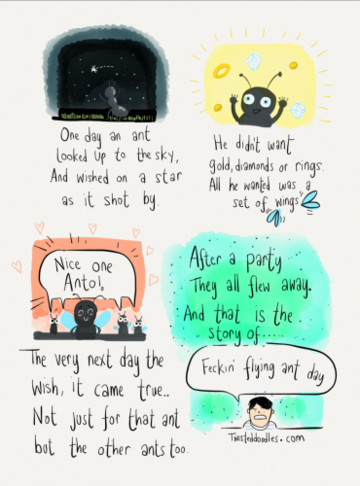 One day an ant
looked up to the sky,
And wished on a star
as it shot by.
He didn't want
gold, diamonds or rings.
All he wanted was a
set of wings
Nice one
Anto!,
The very next day the
wish, it came true..
Not just for that ant
but the other ants too.
After a party
They all flew away.
And that is the
story of.....
Feckin' flying ant day
Twisteddoodles.com